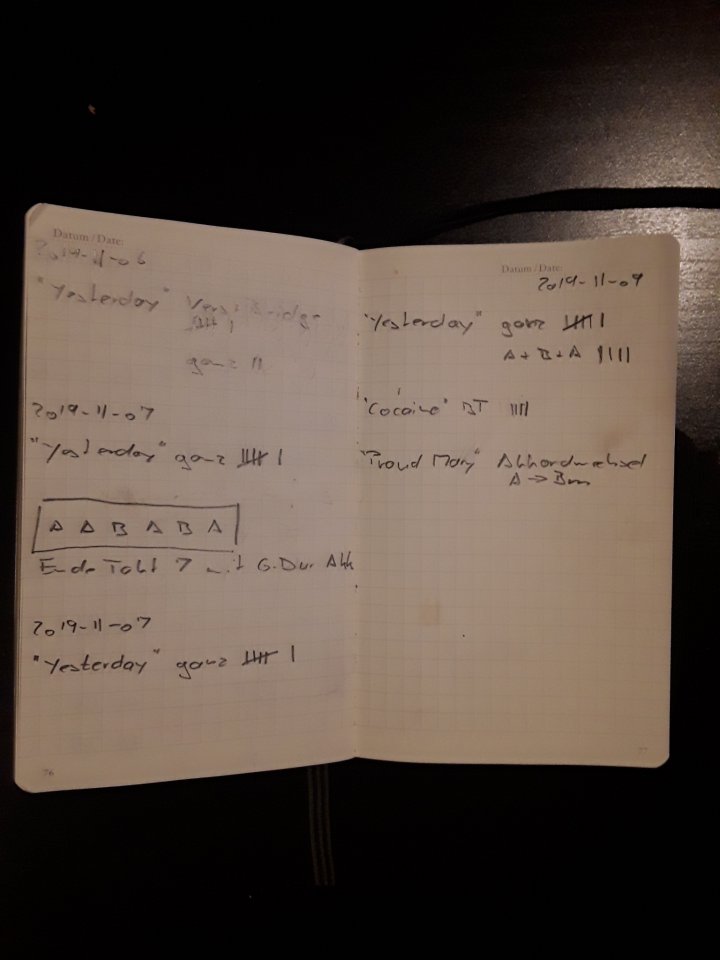 Datum / Date:
2019-11-06
"Yesterday" Vers + Bridge
𝍸 I
ganz II
2019-11-07
"Yesterday" ganz 𝍸 I
A A B A B A
Ende Takt 7 mit G-Dur Akk
2019-11-07
"Yesterday" ganz 𝍸 I
76
Datum / Date:
2019-11-09
"Yesterday" ganz 𝍸 I
A + B + A IIII
"Cocaine" BT IIII
"Proud Mary" Akkordwechsel
A → Bm
77